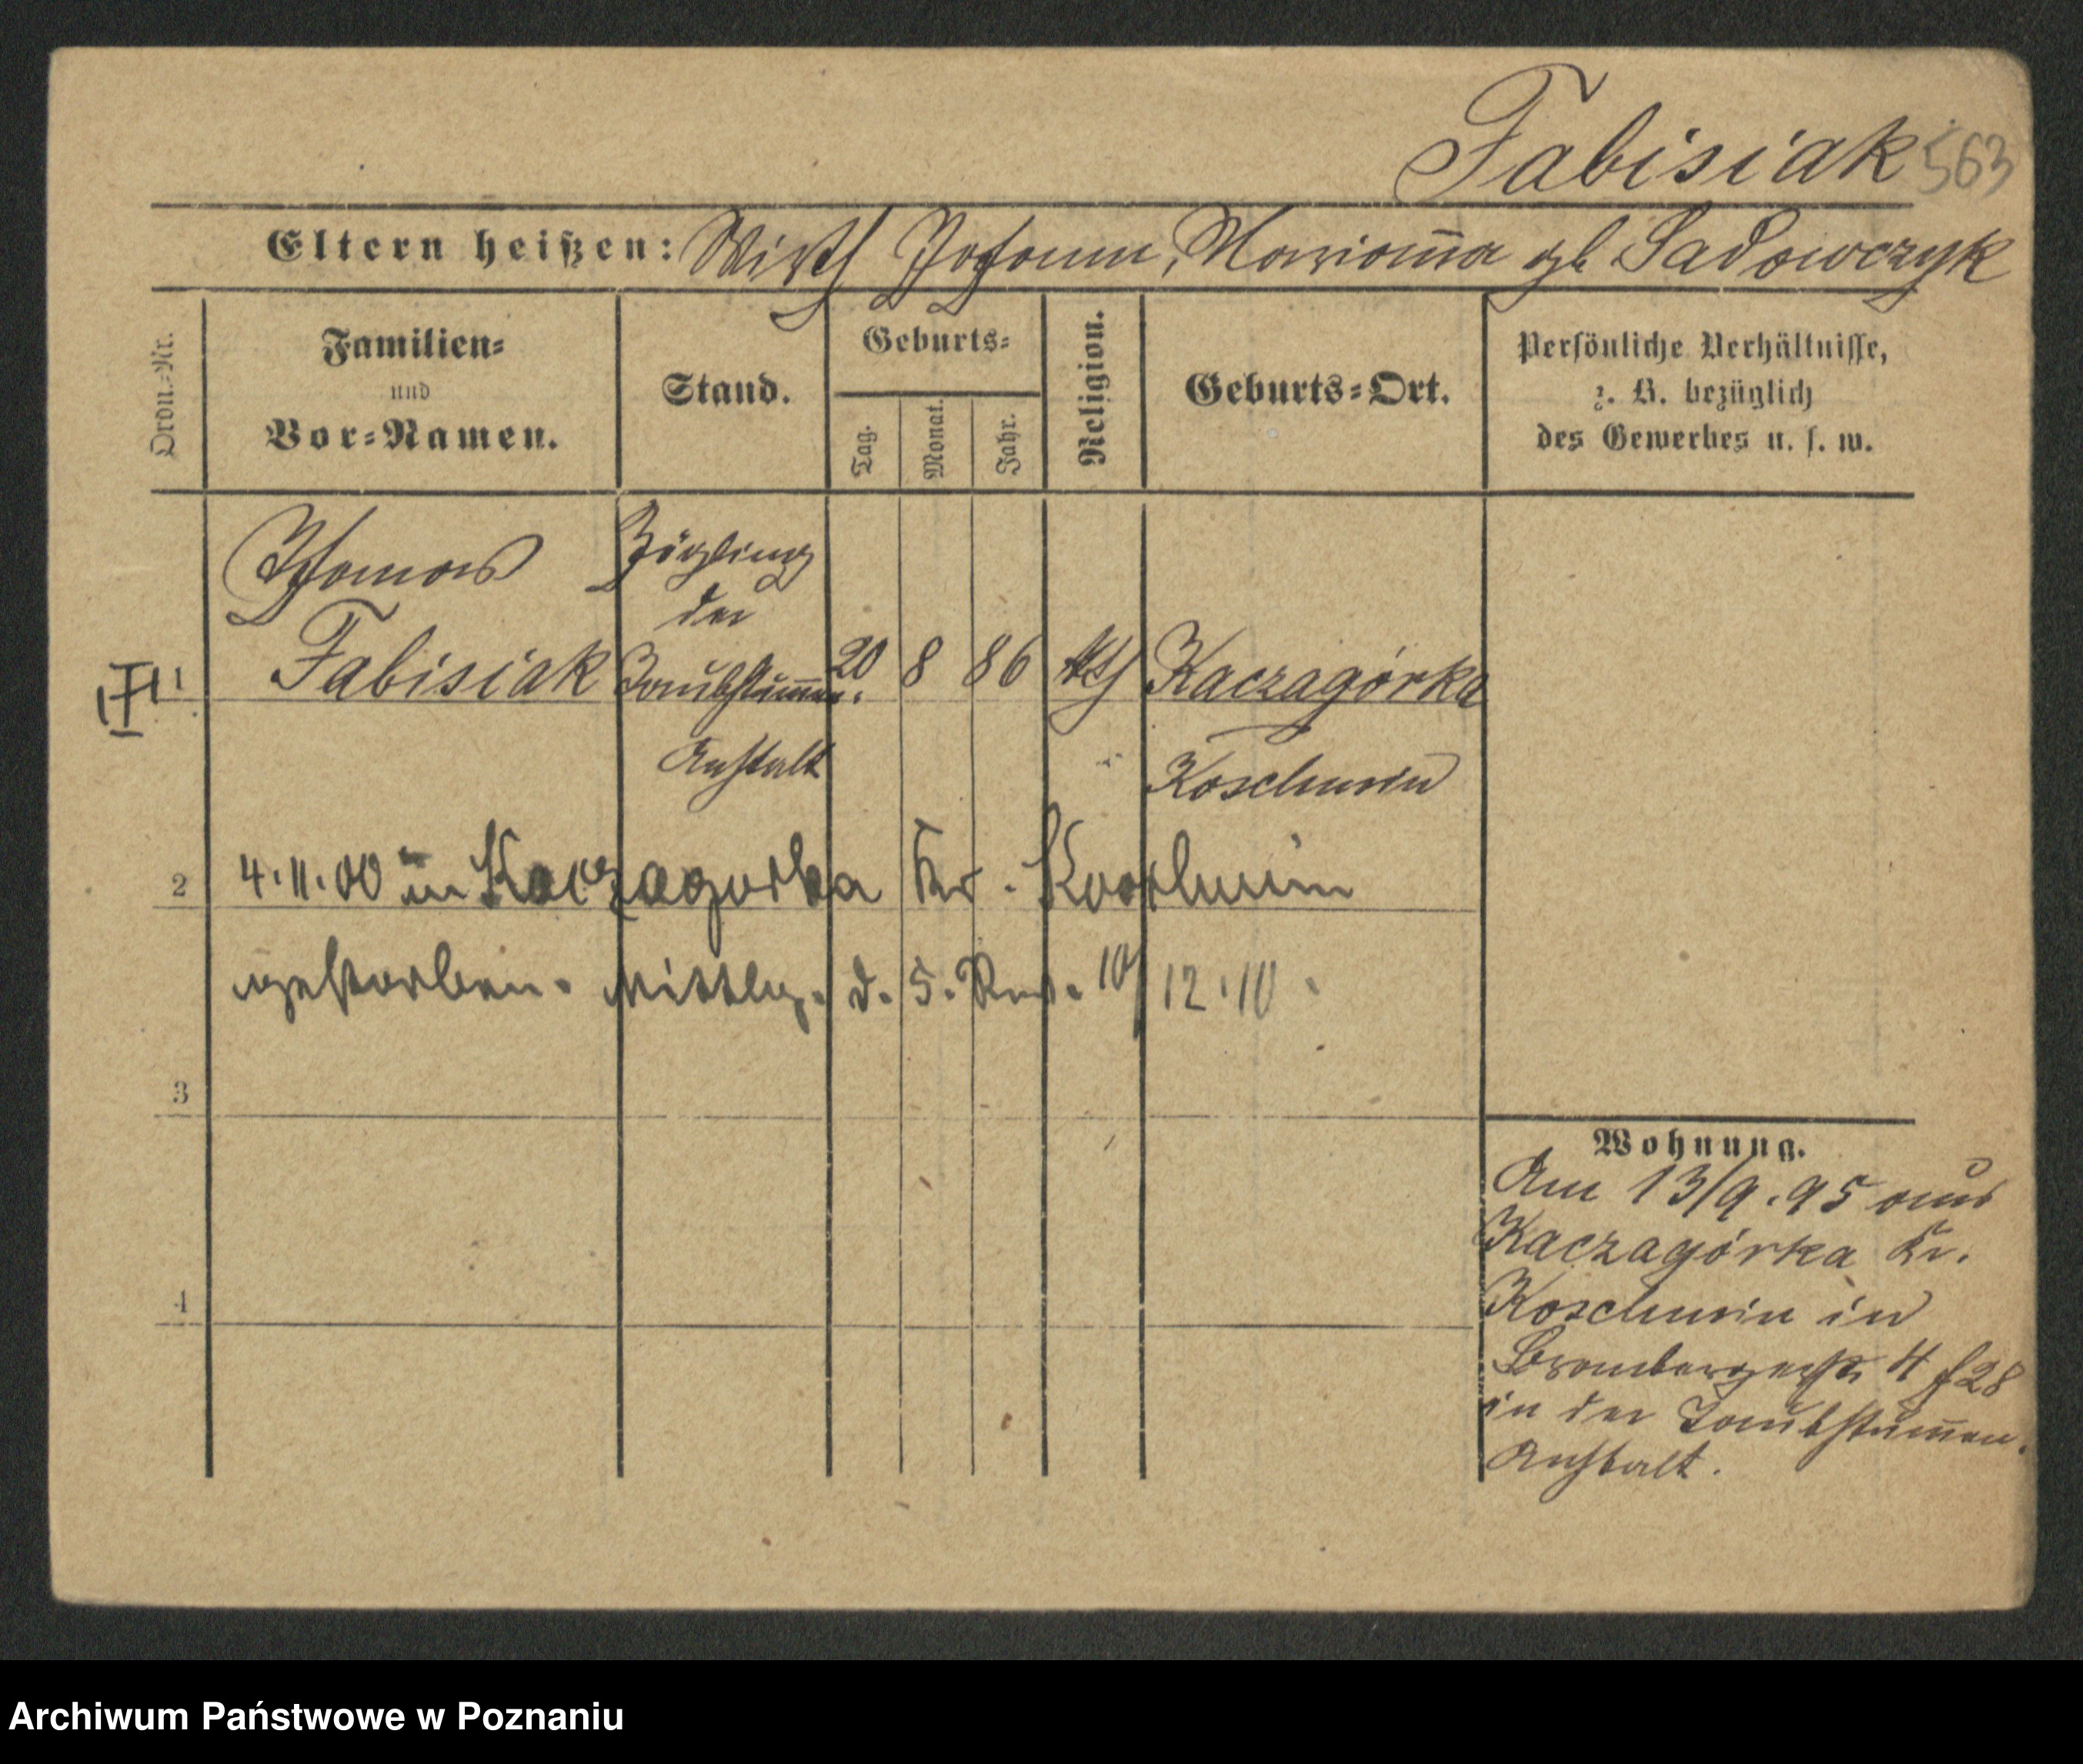 Fabisiak 563
Eltern heißen: Wirth Johann, Marianna gb Sadowczyk
Ordn.-Nr.
Familien-
und
Vor-Namen.
Stand.
Geburts-
Tag.
Monat.
Jahr.
Religion.
Geburts-Ort.
Persönliche Verhältnisse,
z. B. bezüglich
des Gewerbes u. s. w.
Thomas
Zögling
der
1 Fabisiak Taubstummen- 20 8 86 kth Kaczagórka
Anstalt
Koschmin
2 4.11.00 in Kaczagorka Kr. Koschmin
gestorben. Mittlg. d. 5. Rev. 10/12.10.
3
4
Wohnung.
Am 13/9.95 aus
Kaczagórka Kr.
Koschmin in
Brombergerstr 4 f 28
in der Taubstummen-
Anstalt.
Archiwum Państwowe w Poznaniu